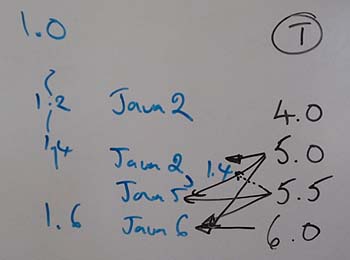 1.0 T
1.2 Java 2 4.0
1.4 Java 2, 1.4 5.0
Java 5 5.5
1.6 Java 6 6.0